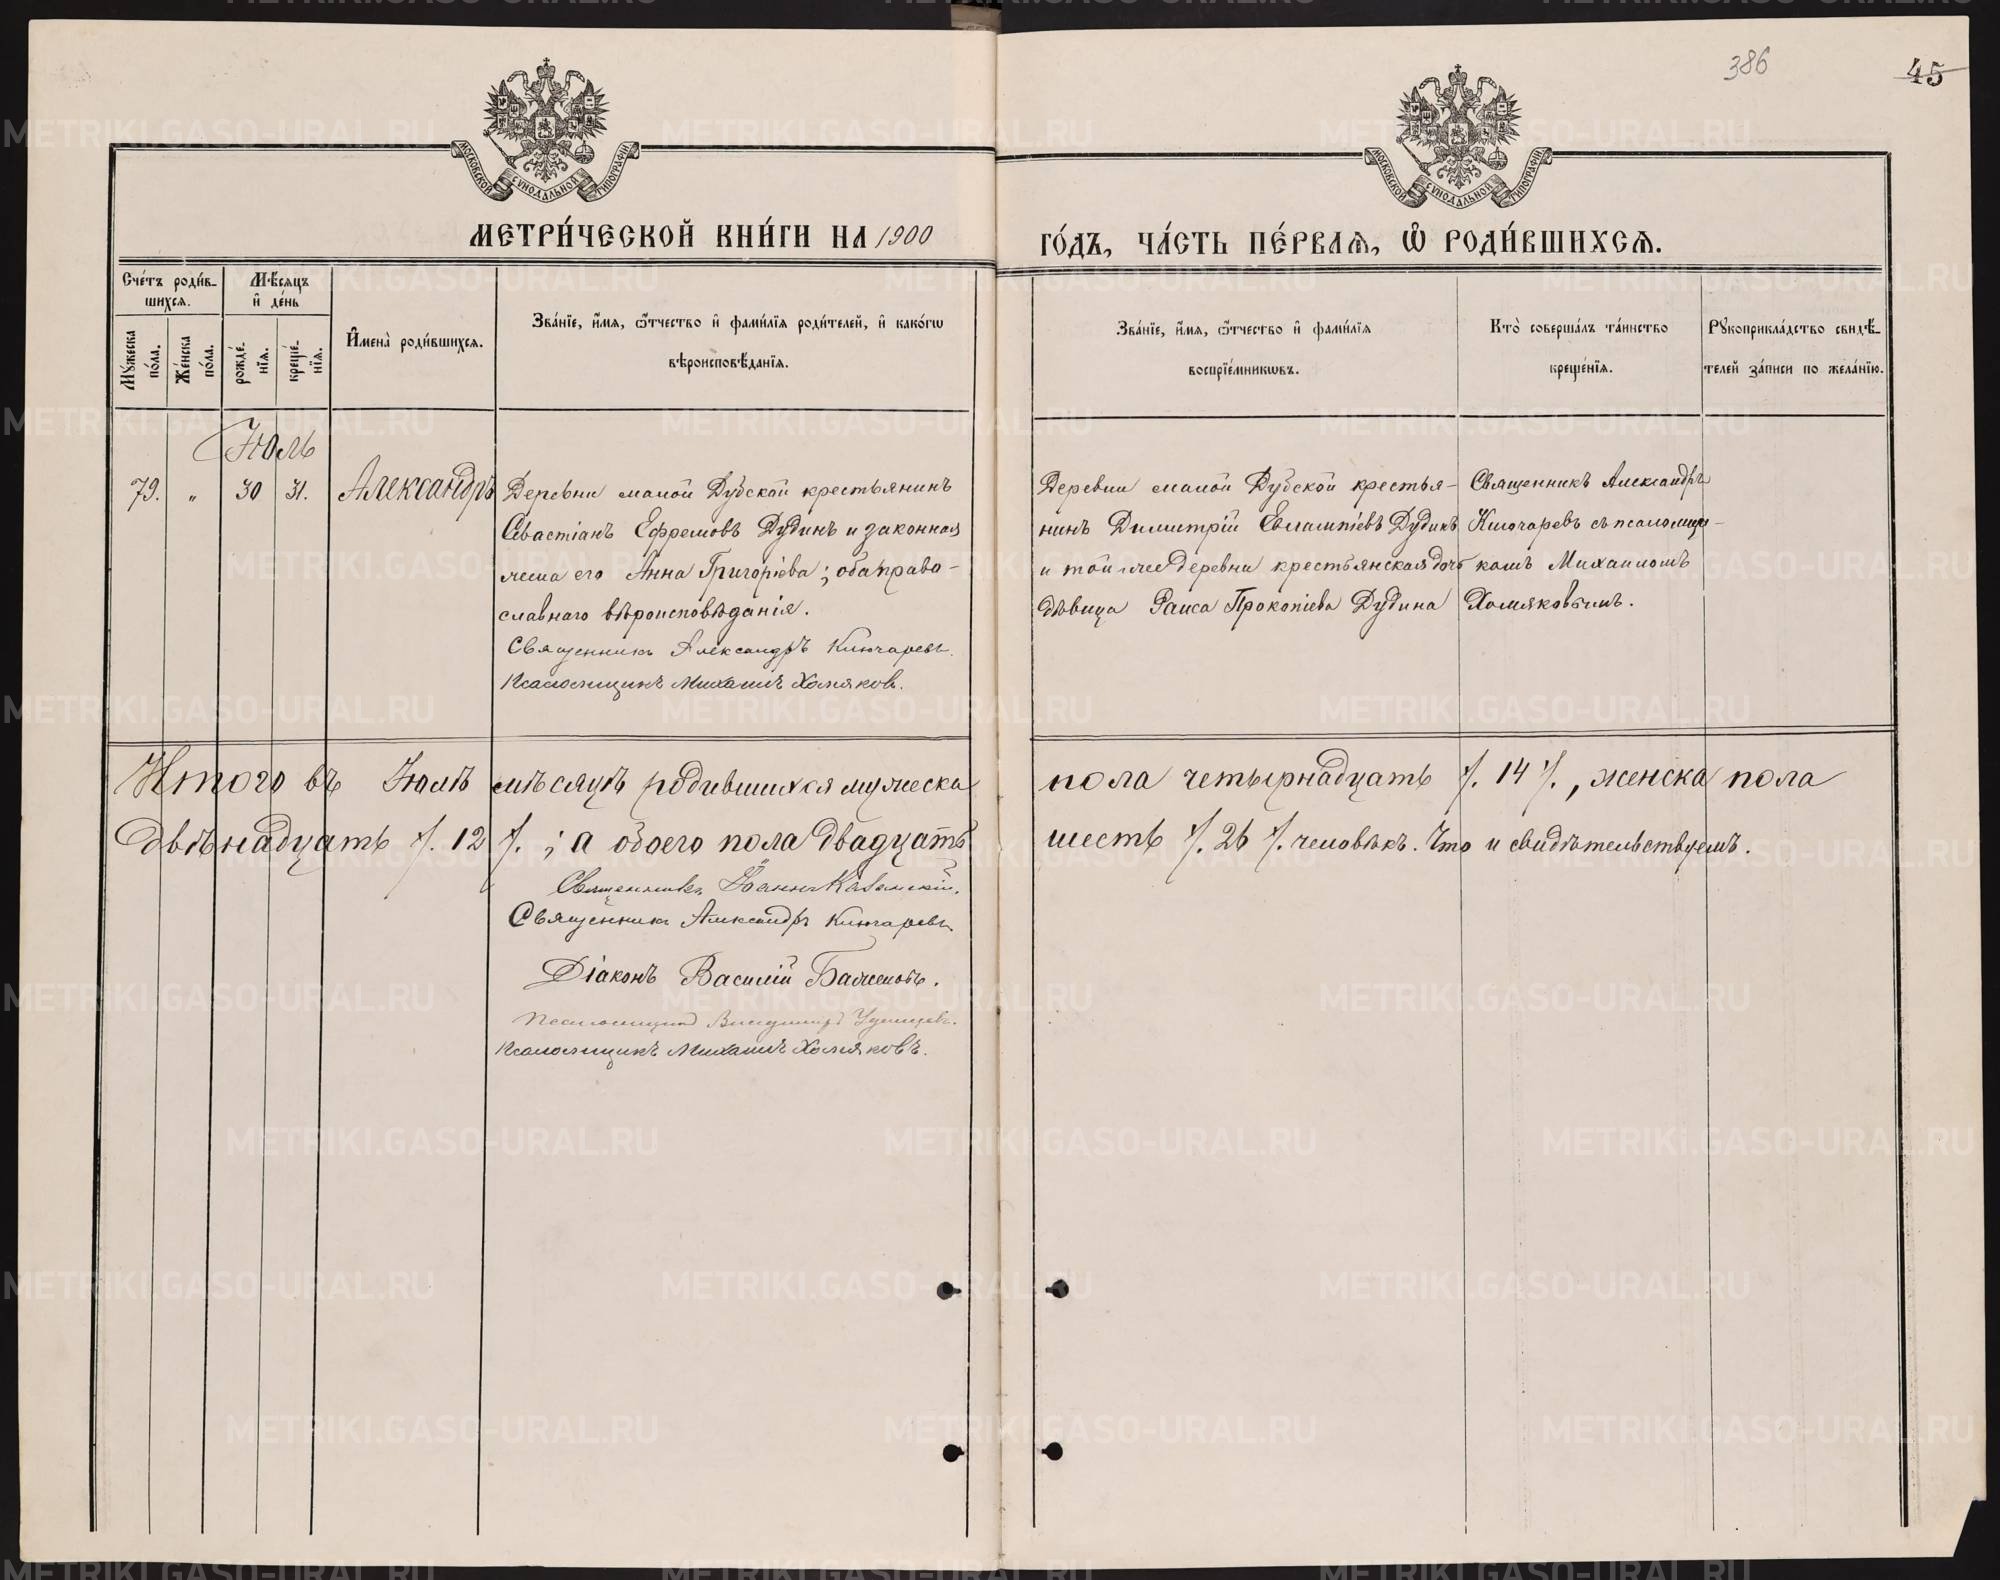 386
45
МОСКОВСКОЙ СѴНОДАЛЬНОЙ ТИПОГРАФІИ
МОСКОВСКОЙ СѴНОДАЛЬНОЙ ТИПОГРАФІИ
МЕТРИ́ЧЕСКОЙ КНИ́ГИ НА 1900
ГО́ДЪ, ЧА́СТЬ ПЕ́РВАѦ, Ѡ҆ РОДИ́ВШИХСѦ.
Сче́тъ роди́в-
шихсѧ.
Мѣ́сѧцъ
и҆ де́нь
Мꙋ́жеска
по́ла.
Же́нска
по́ла.
рожде́-
нїѧ.
креще́-
нїѧ.
И҆мена̀ роди́вшихсѧ.
Зва́нїе, и҆́мѧ, ѻ҆́тчество и҆ фами́лїѧ роди́телей, и҆ како́гѡ
вѣроисповѣ́данїѧ.
Зва́нїе, и҆́мѧ, ѻ҆́тчество и҆ фами́лїѧ
воспрїе́мникѡвъ.
Кто̀ соверша́лъ та́инство
креще́нїѧ.
Рꙋкоприкла́дство свидѣ́-
телей за́писи по жела́нїю.
Іюль
79. „ 30 31. Александръ
Деревни малой Дубской крестьянинъ
Севастіанъ Ефремовъ Дудинъ и законная
жена его Анна Григоріева; оба право-
славнаго вѣроисповѣданія.
Священникъ Александръ Ключаревъ.
Псаломщикъ Михаилъ Хомяковъ.
Деревни малой Дубской крестья-
нинъ Димитрій Евлампіевъ Дудинъ
и той же деревни крестьянская дочь
дѣвица Раиса Прокопіева Дудина
Священникъ Александръ
Ключаревъ съ псаломщи-
комъ Михаиломъ
Хомяковымъ.
Итого въ Іюлѣ мѣсяцѣ родившихся мужеска пола четырнадцать /. 14 /., женска пола
двѣнадцать /. 12 /. ; а обоего пола двадцать шесть /. 26 /. человѣкъ. Что и свидѣтельствуемъ.
Священникъ Іоаннъ
Священникъ Александръ Ключаревъ
Діаконъ Василій Баженовъ.
Псаломщикъ Владиміръ
Псаломщикъ Михаилъ Хомяковъ.
METRIKI.GASO-URAL.RU